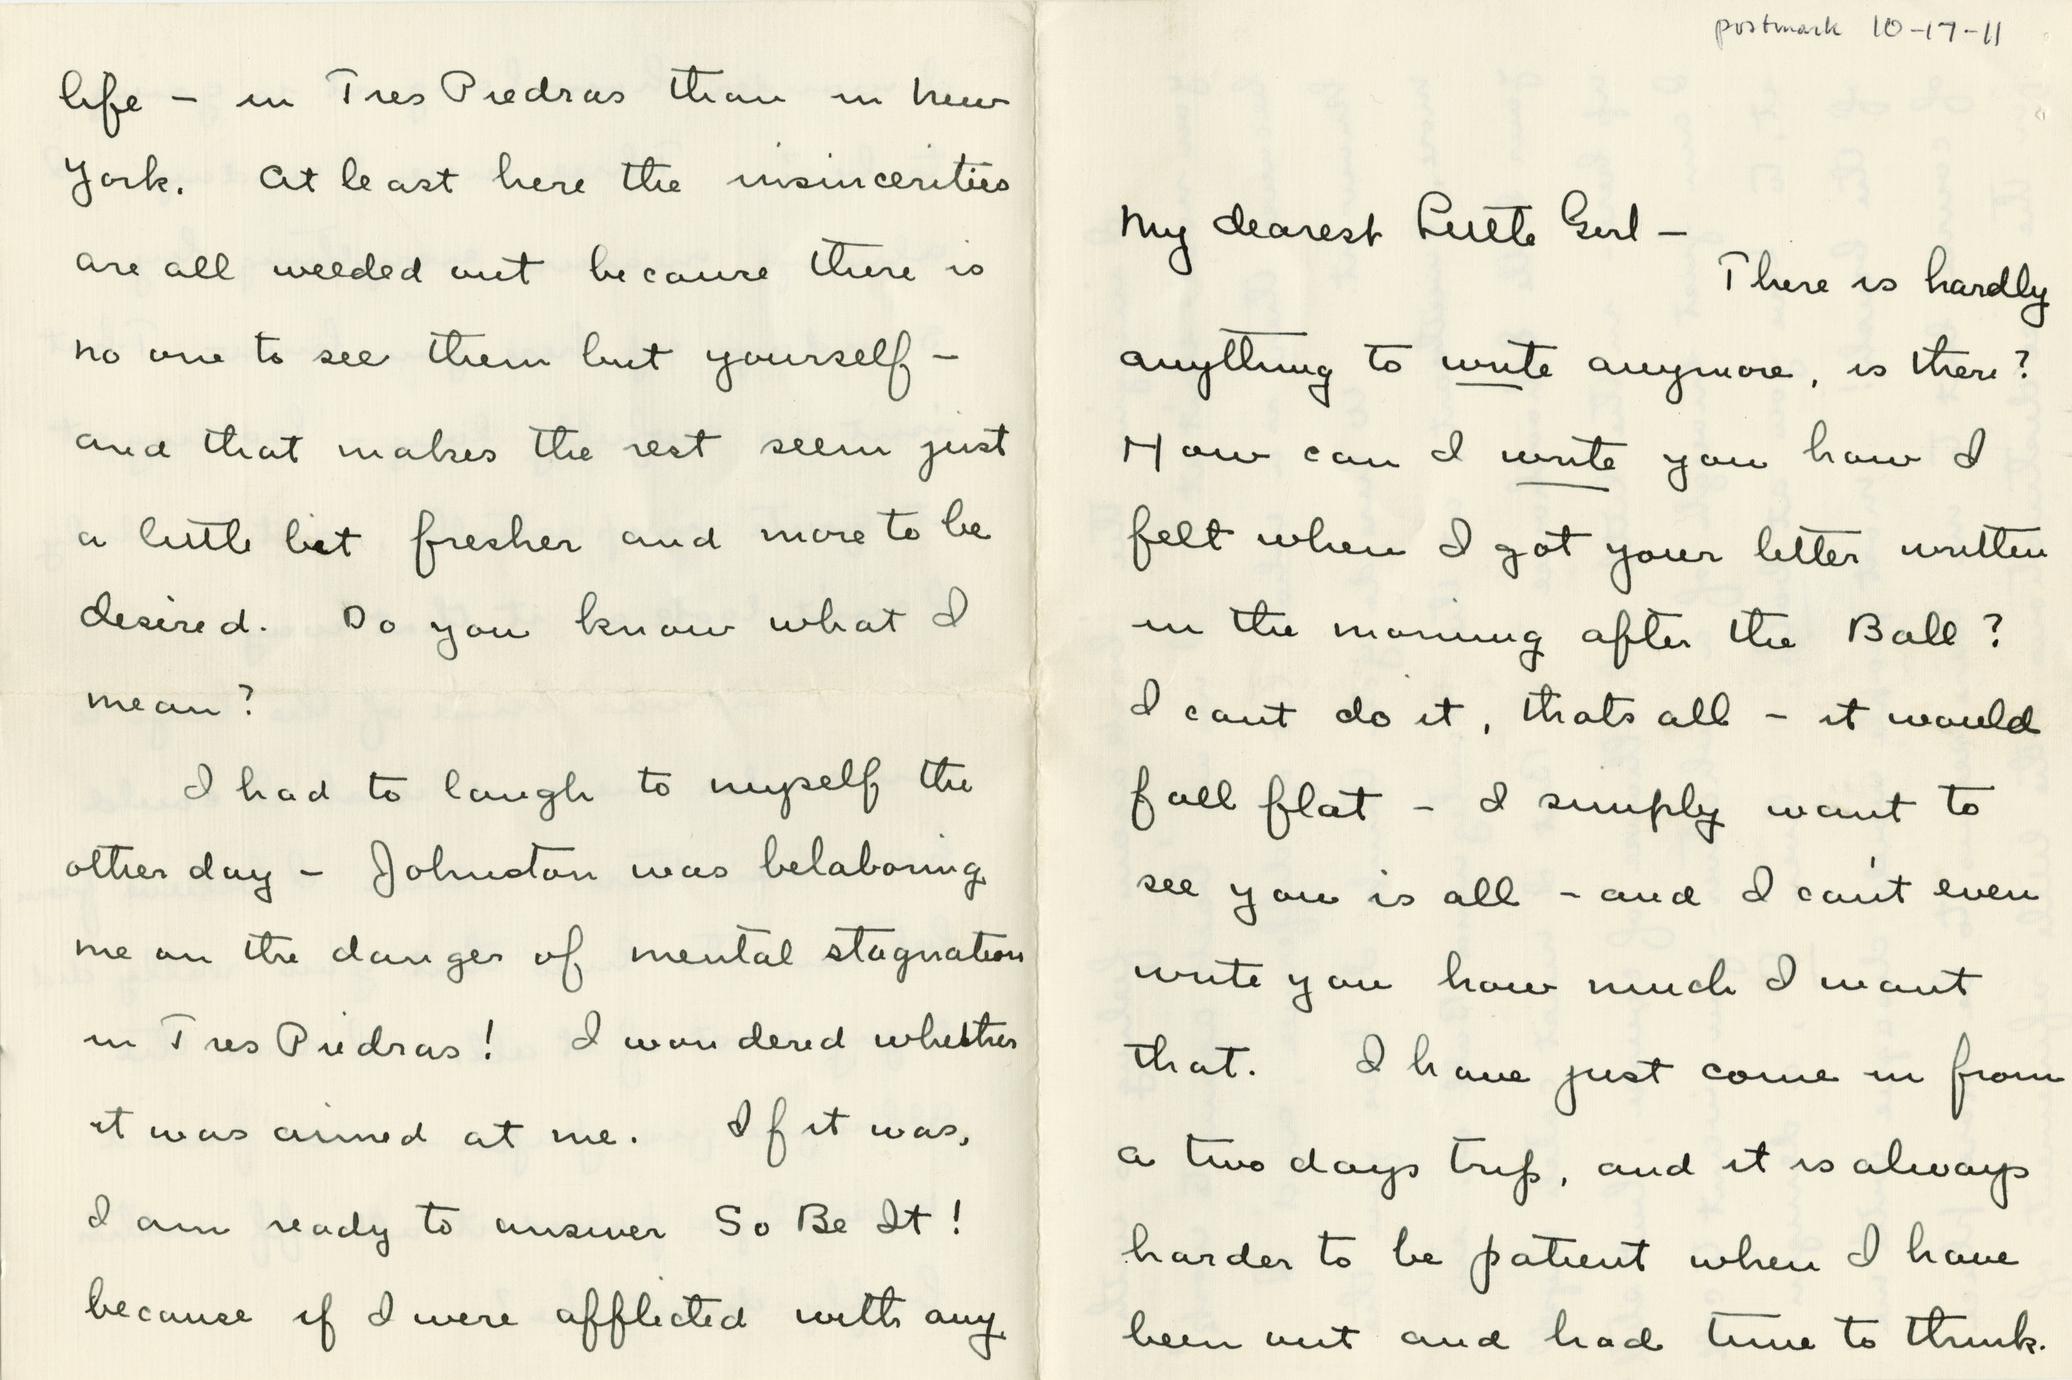 life - in Tres Piedras than in New
York. At least here the insincerities
are all weeded out because there is
no one to see them but yourself -
and that makes the rest seem just
a little bit fresher and more to be
desired. Do you know what I
mean?
I had to laugh to myself the
other day - Johnston was belaboring
me on the danger of mental stagnation
in Tres Piedras! I wondered whether
it was aimed at me. If it was,
I am ready to answer So Be It!
because if I were afflicted with any
postmark 10-17-11
My dearest Little Girl -
There is hardly
anything to write anymore, is there?
How can I write you how I
felt when I got your letter written
in the morning after the Ball?
I cant do it, thats all - it would
fall flat - I simply want to
see you is all - and I can't even
write you how much I want
that. I have just come in from
a two days trip, and it is always
harder to be patient when I have
been out and had time to think.